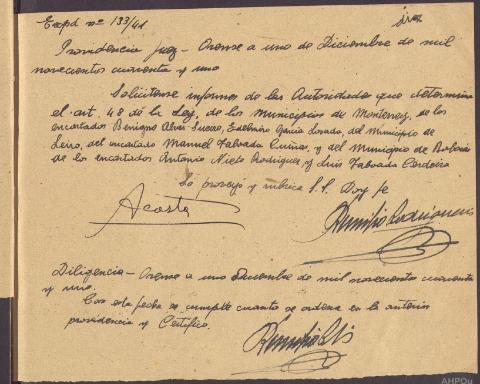 Expd nº 133/41
Providencia Juez - Orense a uno de Diciembre de mil
novecientos cuarenta y uno
Solicitense informes de las Autoridades que determina
el art. 48 de la Ley, de los municipios de Monterrey, de los
encartados Benigno Alvar Suero, Edelmiro Garcia Losada, del Municipio de
Leiro, del encartado Manuel Taboada Cuiñas, y del Municipio de Boborás
de los encartados Antonio Nieto Rodriguez y Luis Taboada Cerdeira
Lo proveyó y rubrica S.S. Doy fe
Acosta
Remigio Rodriguez
Diligencia - Orense a uno Diciembre de mil novecientos cuarenta
y uno.
Con esta fecha se cumple cuanto se ordena en la anterior
providencia y Certifico.
AHPOu